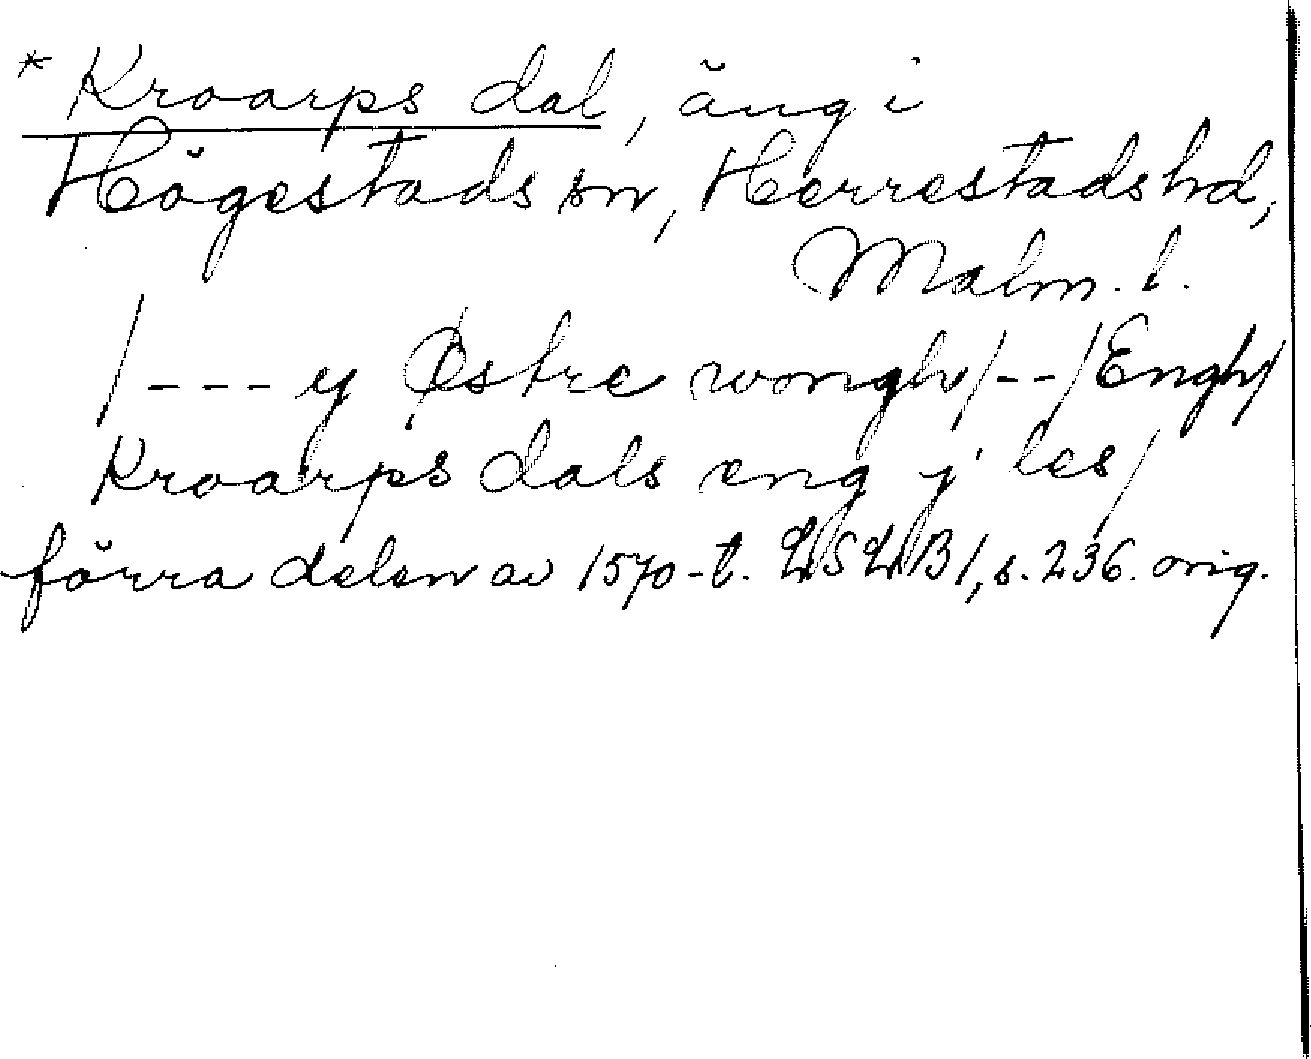 * Kroarps dal, äng i
Högestads sn, Herrestads hd,
Malm. l.
/--- y Østre wongh/--/Engh/
Kroarps dals eng j les/
förra delen av 1570-t. LSLB 1, s. 236. orig.